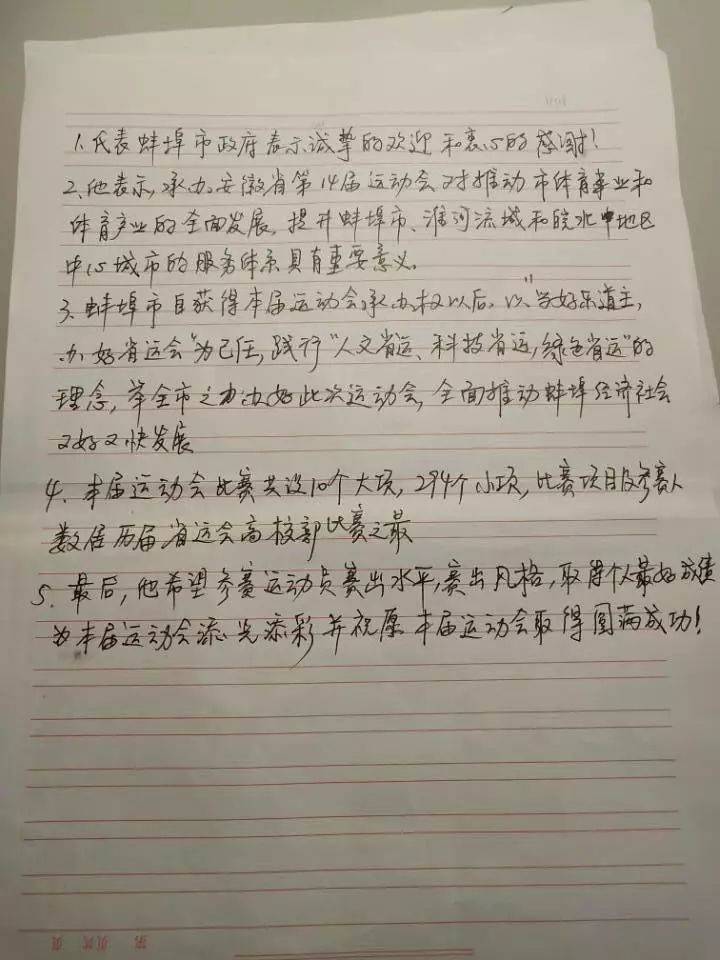 1.代表蚌埠市政府表示诚挚的欢迎和衷心的感谢!
2.他表示,承办安徽省第14届运动会对推动市体育事业和
体育产业的全面发展,提升蚌埠市、淮河流域和皖北中地区
中心城市的服务体系具有重要意义。
3.蚌埠市自获得本届运动会承办权以后,以"当好东道主,
办好省运会"为己任,践行"人文省运、科技省运,绿色省运"的
理念,举全市之力办好此次运动会,全面推动蚌埠经济社会
又好又快发展
4.本届运动会比赛共设10个大项,294个小项,比赛项目及参赛人
数居历届省运会高校部比赛之最
5.最后,他希望参赛运动员赛出水平,赛出风格,取得个人最好成绩
为本届运动会添光添彩并祝愿本届运动会取得圆满成功!
第 页共 页